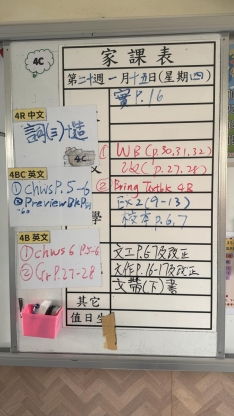 4C
家課表
第二十週 一月十五日(星期四)
實P.16
4R 中文
詞(三)造
4C
① WB (p.30,31,32)
2b2 (p.27,28)
4BC 英文
① chws P.5-6
② Preview BkP.59
-60
② Bring Textbk 4B
學
EX2(9-13)
校本P.6,7
4B 英文
① chws 6 P.5-6
② Gr P.27-28
文工P.67及改正
文作P.16-17及改正
文帶(下)書
其它
值日生